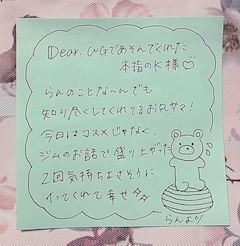 Dear. WGであそんでくれた
本指のK様♡
らんのことな〜んでも
知り尽くしてくれてるお兄サマ!
今日はコスメじゃなく、
ジムのお話で盛り上がった
2回気持ちよさそうに
イってくれて幸せ
らんより